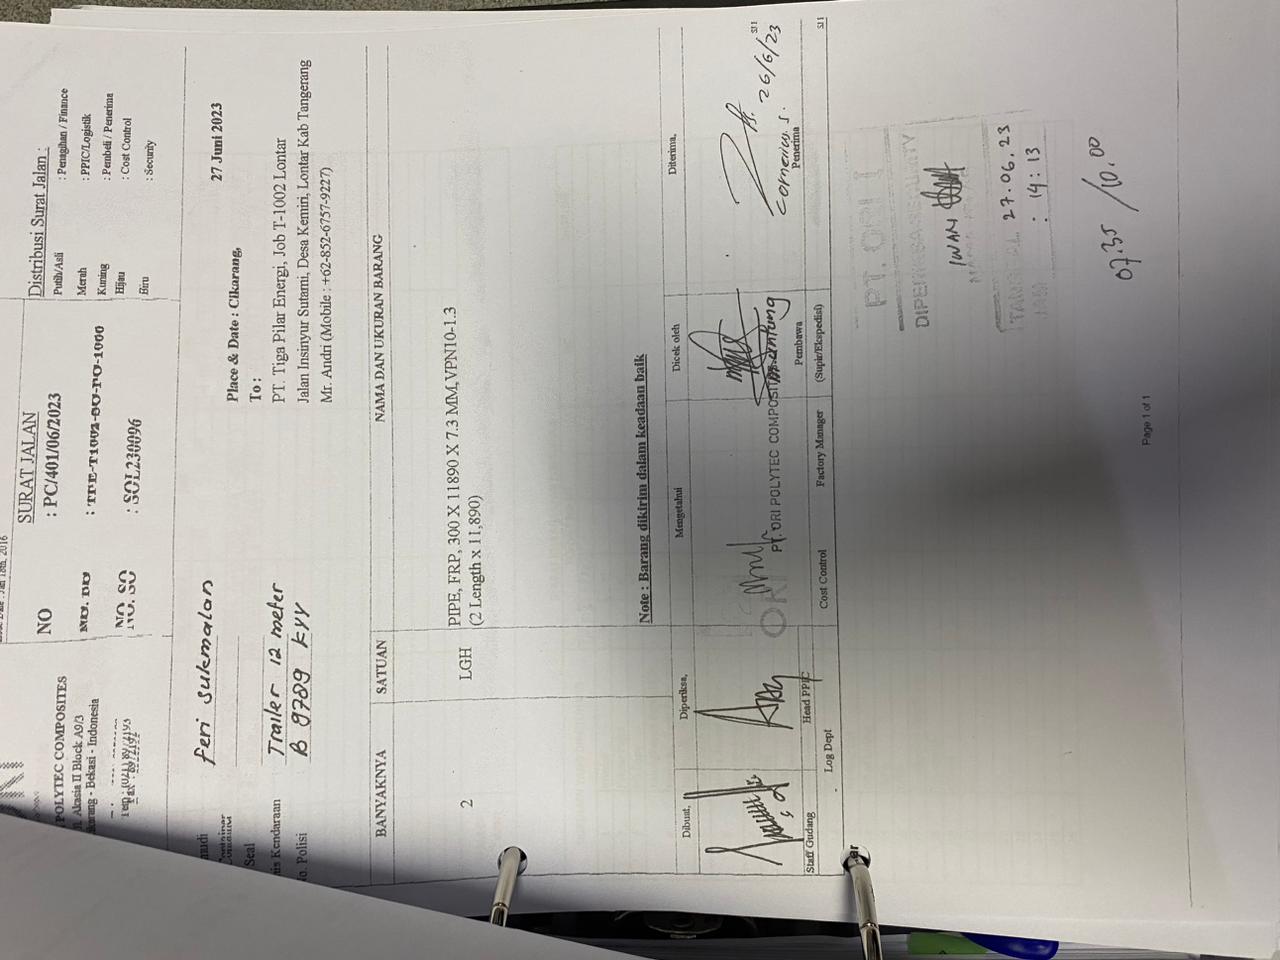 POLYTEC COMPOSITES
Akasia II Block A9/3
- Bekasi - Indonesia
SURAT JALAN
NO : PC/401/06/2023
NO. DO : TPE-T1002-00-PO-1000
NO. SO : SOL230096
Distribusi Surat Jalan :
Putih/Asli : Penagihan / Finance
Merah : PPIC/Logistik
Kuning : Pembeli / Penerima
Hijau : Cost Control
Biru : Security
Feri Sukmalan
Seal
Kendaraan Trailer 12 meter
Polisi B 9789 KYY
Place & Date : Cikarang, 27 Juni 2023
To :
PT. Tiga Pilar Energi, Job T-1002 Lontar
Jalan Insinyur Sutami, Desa Kemiri, Lontar Kab Tangerang
Mr. Andri (Mobile : +62-852-6757-9227)
BANYAKNYA SATUAN NAMA DAN UKURAN BARANG
2 LGH PIPE, FRP, 300 X 11890 X 7.3 MM,VPN10-1.3
(2 Length x 11,890)
Note : Barang dikirim dalam keadaan baik
Dibuat, Diperiksa, Mengetahui Dicek oleh Diterima,
26/6/23
PT. ORI POLYTEC COMPOSITES
Staff Gudang Head PPIC Pembawa Penerima
Log Dept Cost Control Factory Manager (Supir/Ekspedisi)
PT. ORI
DIPERIKSA SECURITY
IWAN
TANGGAL 27.06.23
JAM : 14:13
07.35 / 10.00
Page 1 of 1